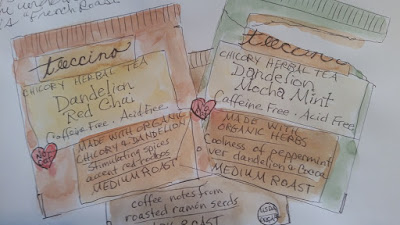 "French Roast"
teeccino
CHICORY HERBAL TEA
Dandelion
Red Chai
Caffeine Free . Acid Free
MADE WITH ORGANIC
CHICORY & DANDELION
Stimulating spices
accent red rooibos
MEDIUM ROAST
teeccino
CHICORY HERBAL TEA
Dandelion
Mocha Mint
Caffeine Free . Acid Free
MADE WITH
ORGANIC HERBS
Coolness of peppermint
over dandelion & cocoa
MEDIUM ROAST
coffee notes from
roasted ramón seeds
ROAST